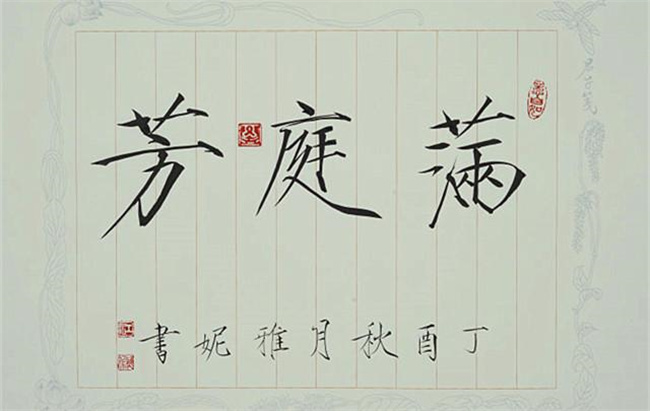 滿庭芳
丁酉秋月雅妮书